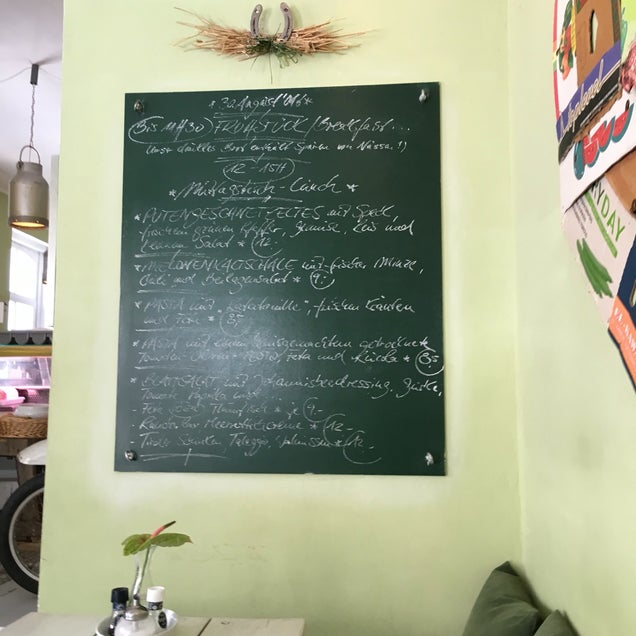 * 30. August '016 *
(Bis 11H30) FRÜHSTÜCK / Breakfast...
Unser dunkles Brot enthält Spuren von Nüssen !)
12 - 15H
* Mittagstisch - Lunch *
* PUTENGESCHNETZELTES mit Speck,
frischem grünem Pfeffer, Gemüse, Reis und
kleinem Salat * 12.-
* MELONENKALTSCHALE mit frischer Minze,
und Beilagensalat * 9.-
* PASTA mit "Ratatouille", frischen Kräutern
und Feta *
* PASTA mit einem hausgemachten getrocknete
Tomaten-Oliven-Pesto, Feta und Rucola *
* BLATTSALAT mit Johannisbeerdressing, Gurke,
Tomate, Paprika und
- Feta oder Thunfisch * je 9.-
- Meerrettichcreme * 12.-
- Tiroler Schinken, Taleggio, Walnüsse * 12.-
DAY